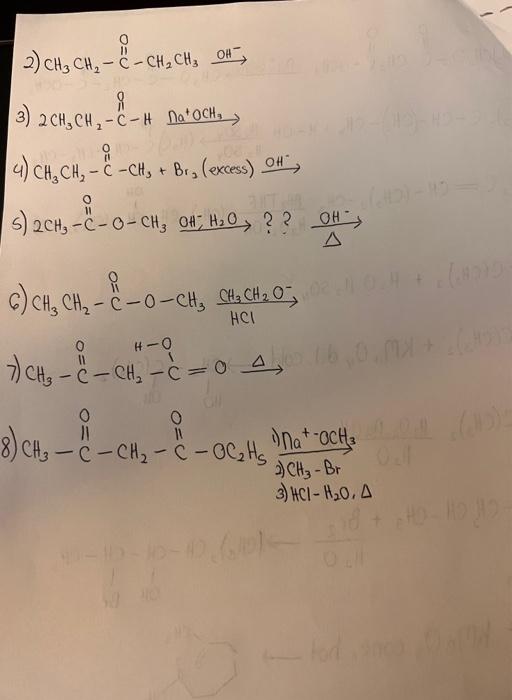 2) CH₃CH₂-C(=O)-CH₂CH₃ OH⁻ →
3) 2CH₃CH₂-C(=O)-H Na⁺OCH₃ →
4) CH₃CH₂-C(=O)-CH₃ + Br₂ (excess) OH⁻ →
5) 2CH₃-C(=O)-O-CH₃ OH⁻, H₂O → ? ? OH⁻ → Δ
6) CH₃CH₂-C(=O)-O-CH₃ CH₃CH₂O⁻ → HCl
7) CH₃-C(=O)-CH₂-C(O-H)=O Δ →
8) CH₃-C(=O)-CH₂-C(=O)-OC₂H₅ 1) Na⁺⁻OCH₃ →
2) CH₃-Br
3) HCl-H₂O, Δ